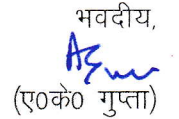 भवदीय,
(ए0के0 गुप्ता)